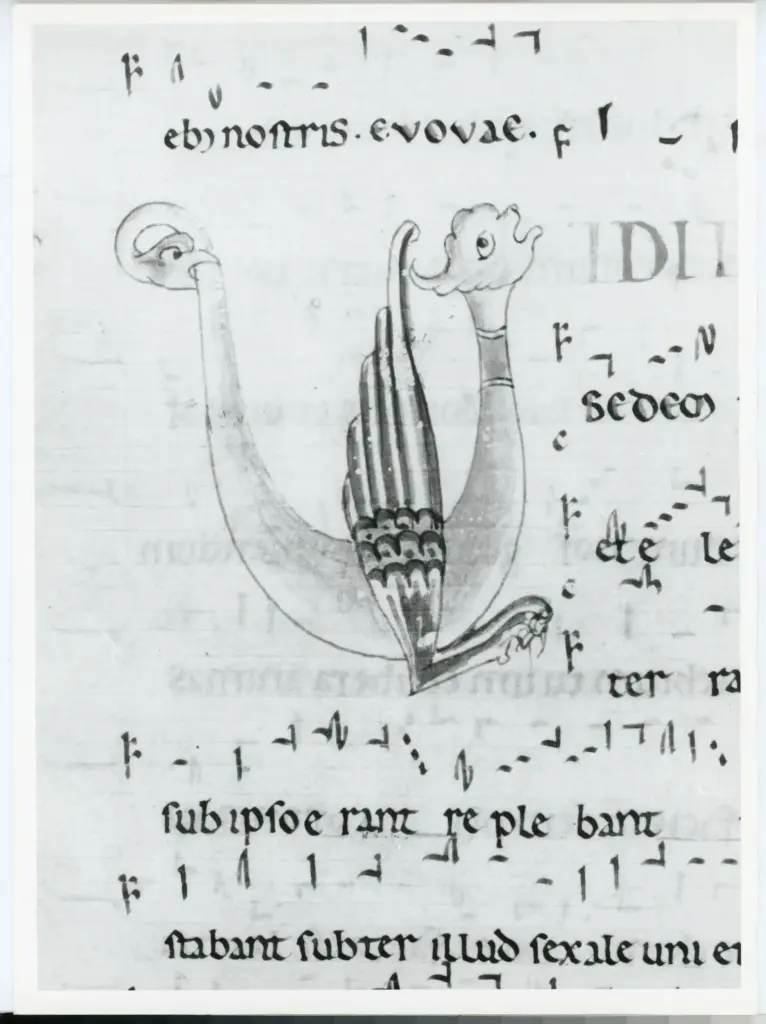 ebꝫ noſtris. evovae.
IDIT
sedem
et e le
ter ra
ſub ipſo e rant re ple bant
ſtabant ſubter illud ſex ale uni et